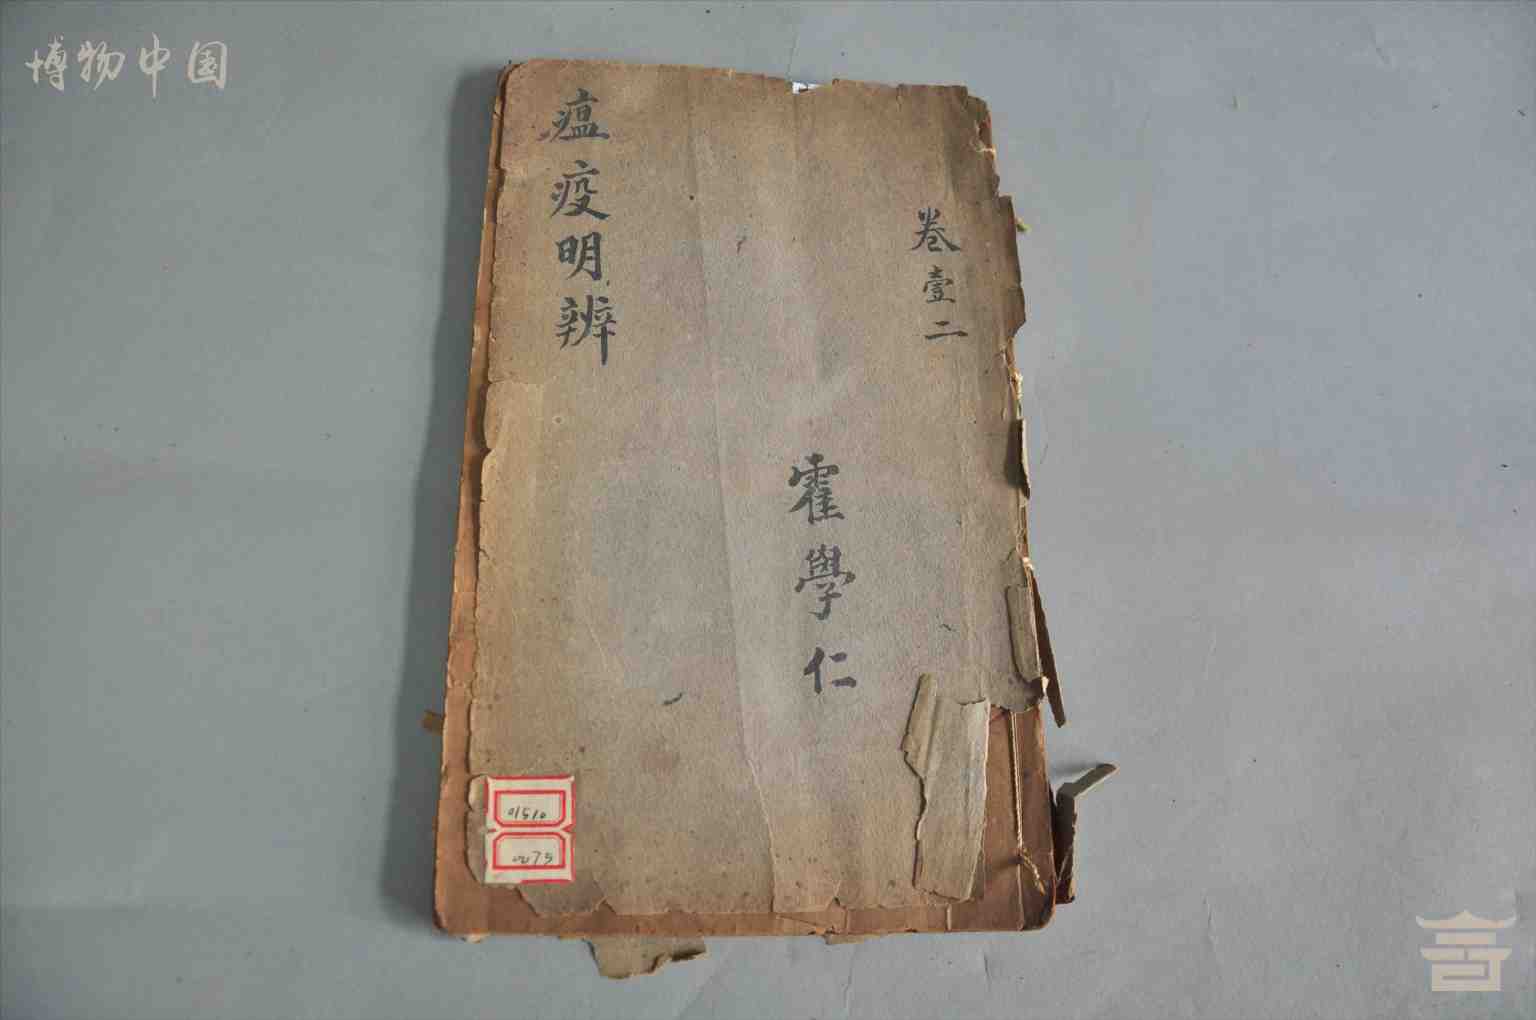 博物中国
瘟疫明辨
卷壹二
霍學仁
01510
0275